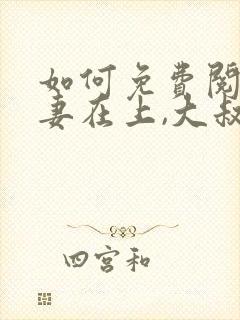 如何免费阅
妻在上,大叔
四宫和